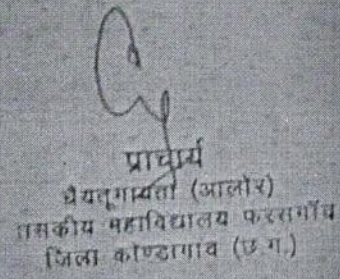 प्राचार्य
धैयतूगायता (आलोर)
शासकीय महाविद्यालय फरसगाँव
जिला कोण्डागांव (छ.ग.)